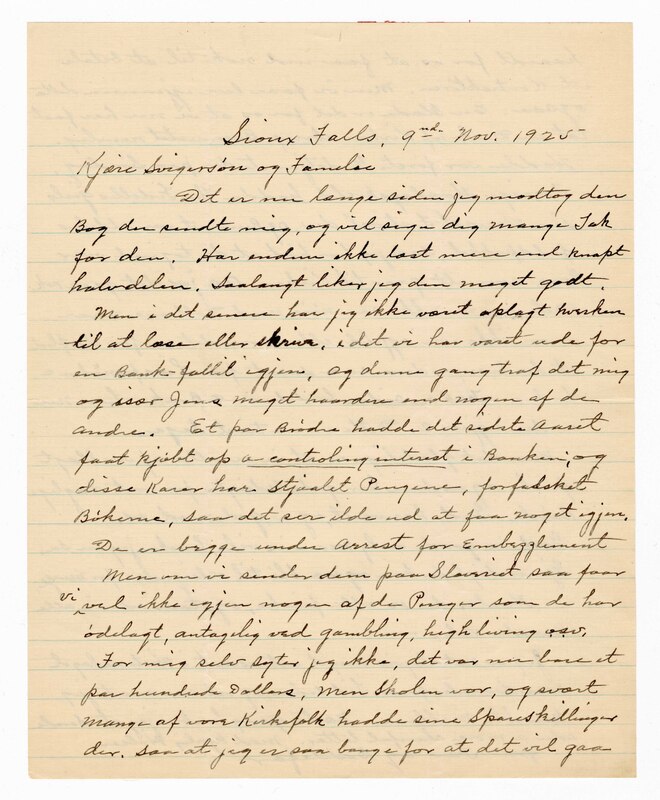 Sioux Falls, 9nd. Nov. 1925
Kjære Svigersøn og Familie
Det er nu længe siden jeg modtog den
Bog du sendte mig, og vil sige dig mange Tak
for den. Har endnu ikke læst mere end knapt
halvdelen. Saalangt liker jeg den meget godt.
Men i det senere har jeg ikke været oplagt hverken
til at læse eller skrive, i det vi har været ude for
en Bank-fallit igjen, og denne gang traf det mig
og især Jens meget haardere end nogen af de
andre. Et par Brødre hadde det sidste Aaret
faat kjøbt op a controling interest i Banken, og
disse Karer har stjaalet Pengene, forfalsket
Bøkerne, saa det ser ilde ud at faa noget igjen.
De er begge under Arrest for Embezzlement
Men om vi sender dem paa Slaveriet saa faar
vi vel ikke igjen nogen af de Penger som de har
ødelagt, antagelig ved gambling, high living osv.
For mig selv syter jeg ikke, det var nu bare et
par hundrede Dollars, men Skolen vor, og svært
mange af vore Kirkefolk hadde sine Spareskillinger
der. saa at jeg er saa bange for at det vil gaa